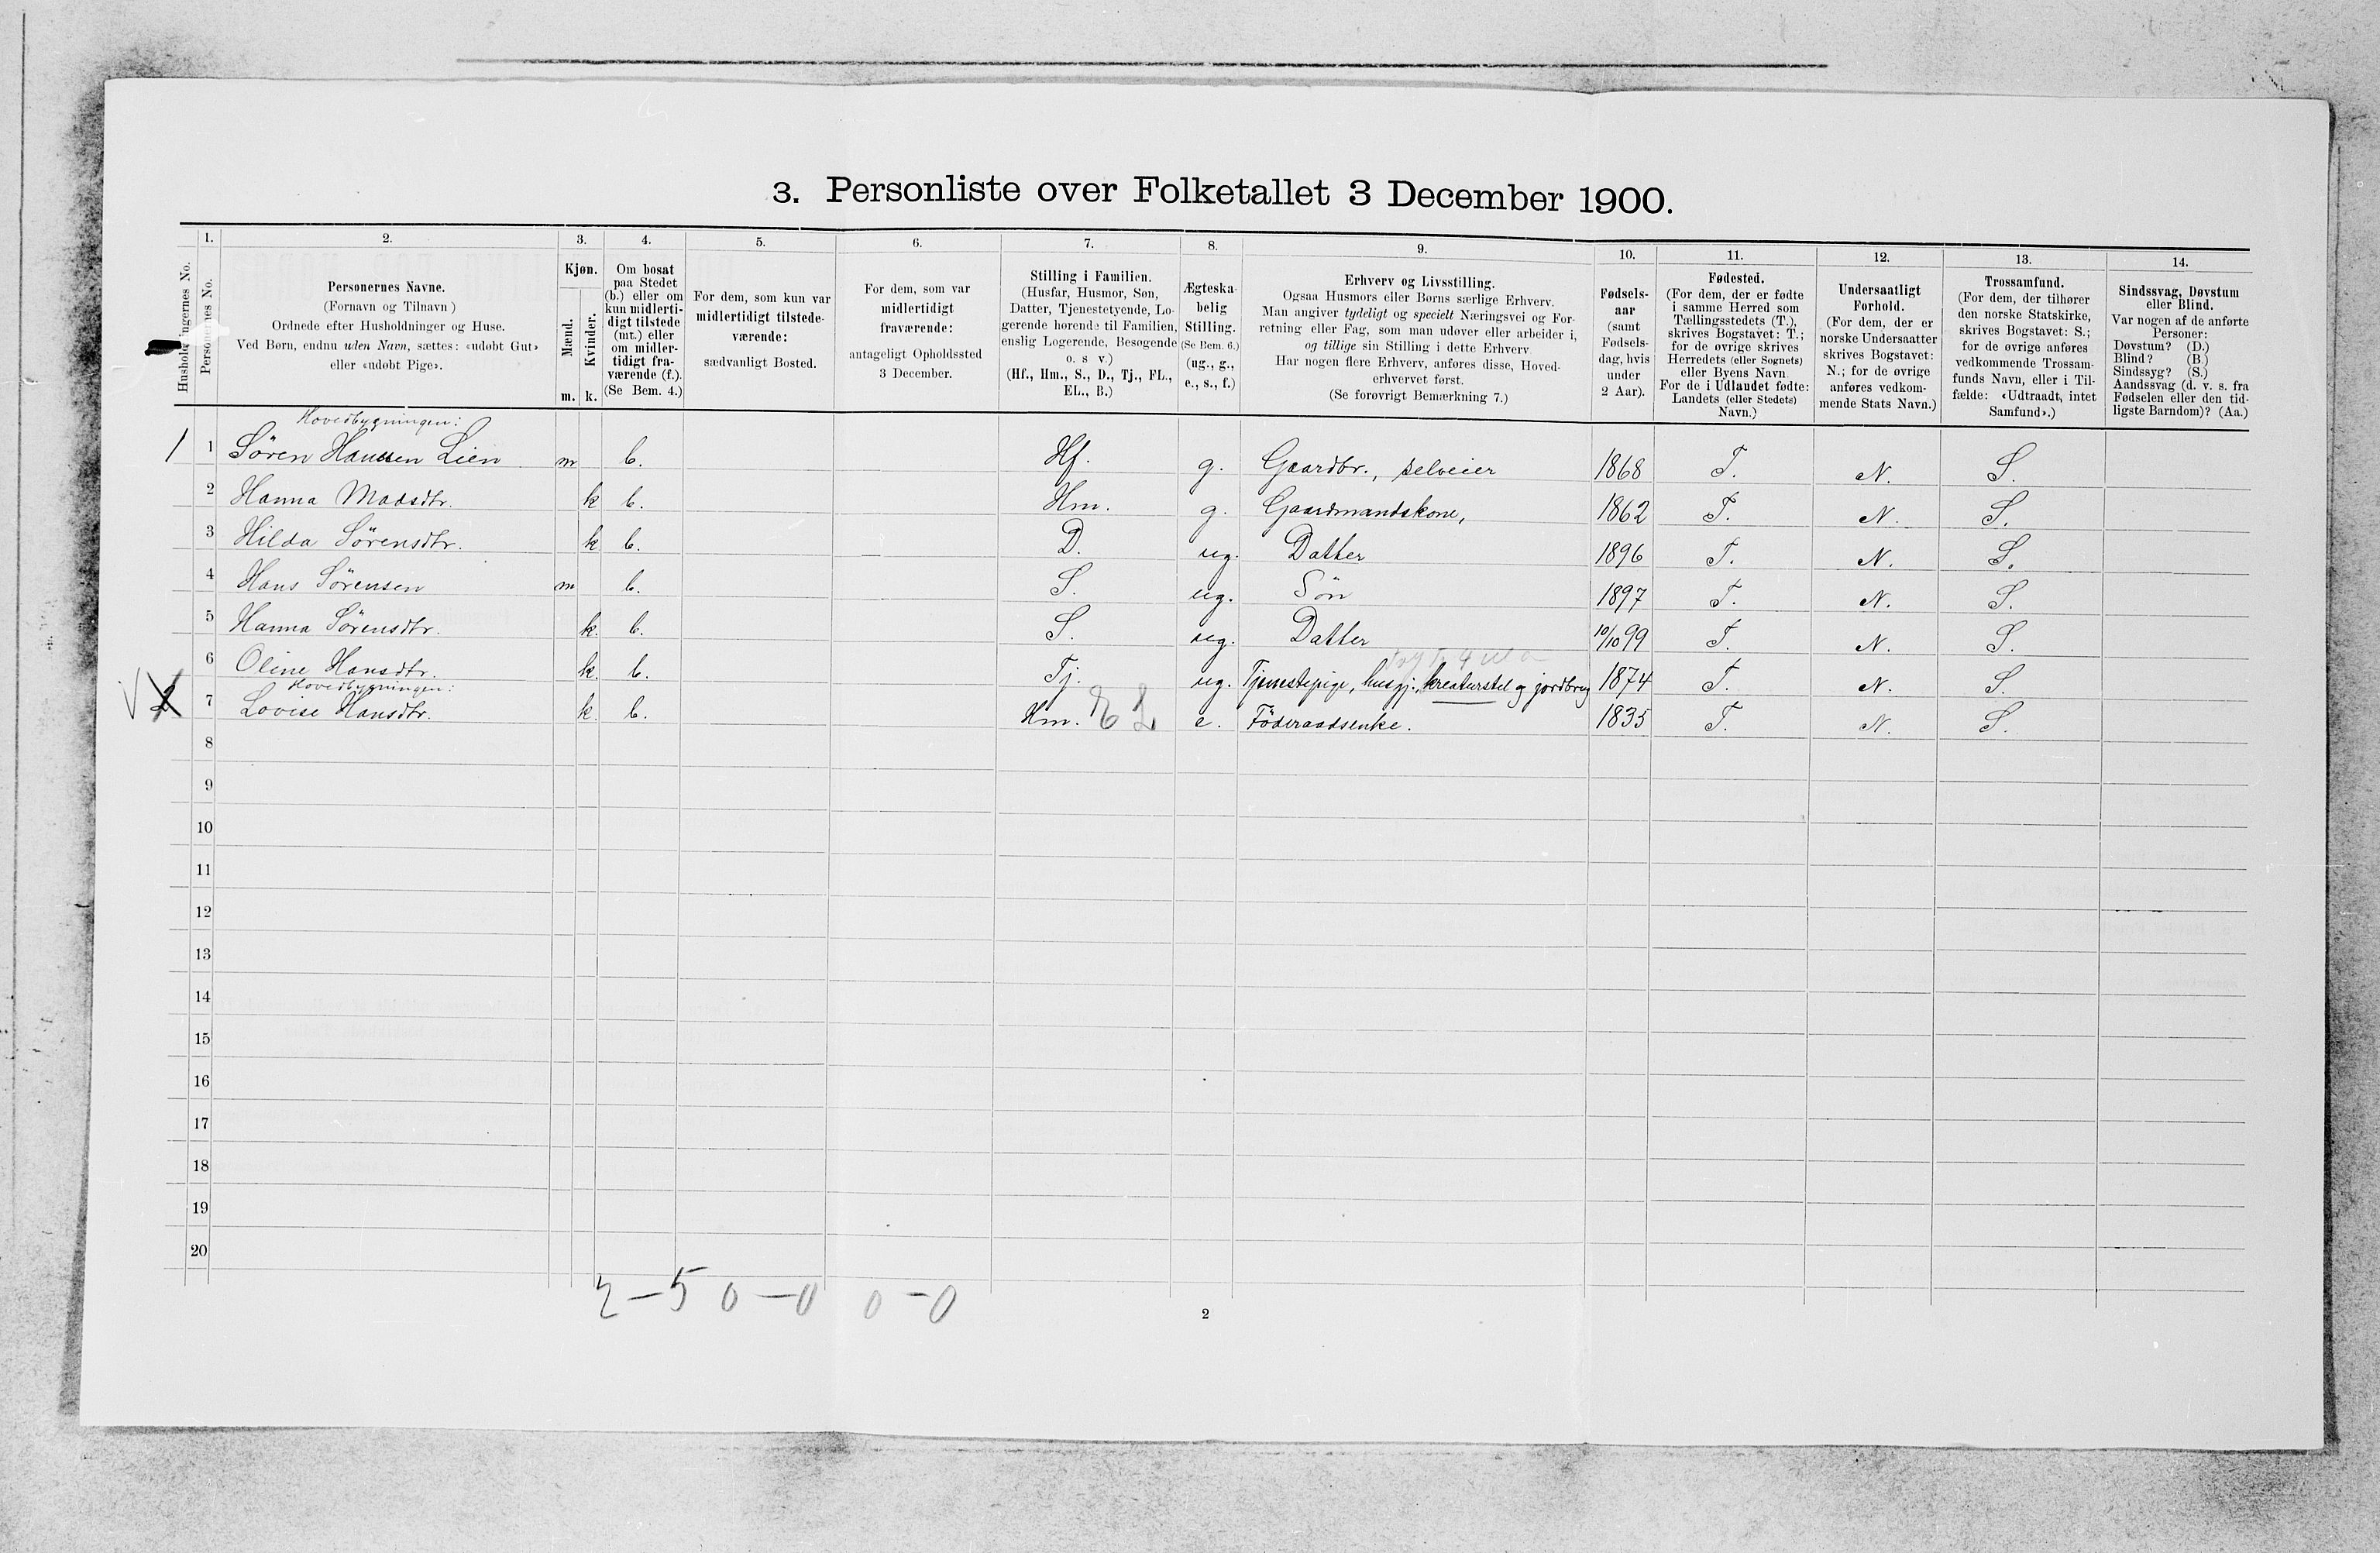 3. Personliste over Folketallet 3 December 1900.
Husholdningernes No.
1. Personernes No.
2. Personernes Navne.
(Fornavn og Tilnavn)
Ordnede efter Husholdninger og Huse.
Ved Børn, endnu uden Navn, sættes: «udøbt Gut»
eller «udøbt Pige».
3. Kjøn.
Mænd. Kvinder.
m. k.
4. Om bosat
paa Stedet
(b.) eller om
kun midlerti-
digt tilstede
(mt.) eller
om midler-
tidigt fra-
værende (f.).
(Se Bem. 4.)
5. For dem, som kun var
midlertidigt tilstede-
værende:
sædvanligt Bosted.
6. For dem, som var
midlertidigt
fraværende:
antageligt Opholdssted
3 December.
7. Stilling i Familien.
(Husfar, Husmor, Søn,
Datter, Tjenestetyende, Lo-
gerende hørende til Familien,
enslig Logerende, Besøgende
o. s v.)
(Hf., Hm., S., D., Tj., FL.,
EL., B.)
8. Ægteska-
belig
Stilling.
(Se Bem. 6.)
(ug., g.,
e., s., f.)
9. Erhverv og Livsstilling.
Ogsaa Husmors eller Børns særlige Erhverv.
Man angiver tydeligt og specielt Næringsvei og For-
retning eller Fag, som man udøver eller arbeider i,
og tillige sin Stilling i dette Erhverv
Har nogen flere Erhverv, anføres disse, Hoved-
erhvervet først.
(Se forøvrigt Bemærkning 7.)
10. Fødsels-
aar
(samt
Fødsels-
dag, hvis
under
2 Aar).
11. Fødested.
(For dem, der er fødte
i samme Herred som
Tællingsstedets (T.),
skrives Bogstavet: T.;
for de øvrige skrives
Herredets (eller Sognets)
eller Byens Navn.
For de i Udlandet fødte:
Landets (eller Stedets)
Navn.)
12. Undersaatligt
Forhold.
(For dem, der er
norske Undersaatter
skrives Bogstavet:
N.; for de øvrige
anføres vedkom-
mende Stats Navn.)
13. Trossamfund.
(For dem, der tilhører
den norske Statskirke,
skrives Bogstavet: S.;
for de øvrige anføres
vedkommende Trossam-
funds Navn, eller i Til-
fælde: «Udtraadt, intet
Samfund».)
14. Sindssvag, Døvstum
eller Blind.
Var nogen af de anførte
Personer:
Døvstum? (D.)
Blind? (B.)
Sindssyg? (S.)
Aandssvag (d. v. s. fra
Fødselen eller den tid-
ligste Barndom)? (Aa.)
Hovedbygningen:
1 1 Sören Hansen Lien m b. Hf. g. Gaardbr., selveier 1868 T. N. S.
2 Hanna Madsdtr. k b. Hm. g. Gaardmandskone, 1862 T. N. S.
3 Hilda Sörensdtr. k b. D. ug. Datter 1896 T. N. S.
4 Hans Sörensen m b. S. ug. Sön 1897 T. N. S.
5 Hanna Sörensdtr. k. b. S. ug. Datter 10/10 99 T. N. S.
6 Oline Hansdtr. k. b. Tj. ug. Tjenestepige, husgj., kreaturstel og jordbrug 1874 T. N. S.
Hovedbygningen:
2 7 Lovise Hansdtr. k. b. Hm. E L e. Föderaadsenke. 1835 T. N. S.
8
9
10
11
12
13
14
15
16
17
18
19
20
2 - 5 0 - 0 0 - 0
2